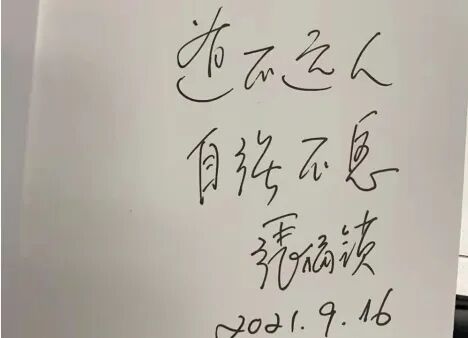 道不远人
自强不息
张福锁
2021.9.16